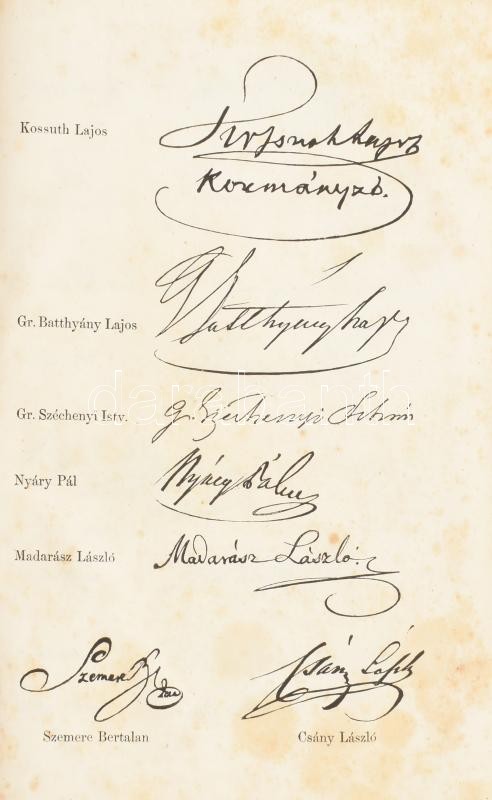 Kossuth Lajos
Kossuth Lajos
Kormányzó.
Gr. Batthyány Lajos
G Batthyány Lajos
darabanth
Gr. Széchenyi Istv.
Gr. Széchenyi István
Nyáry Pál
Nyáry Pál
Madarász László
Madarász László.
Szemere
Csány László
Szemere Bertalan
Csány László